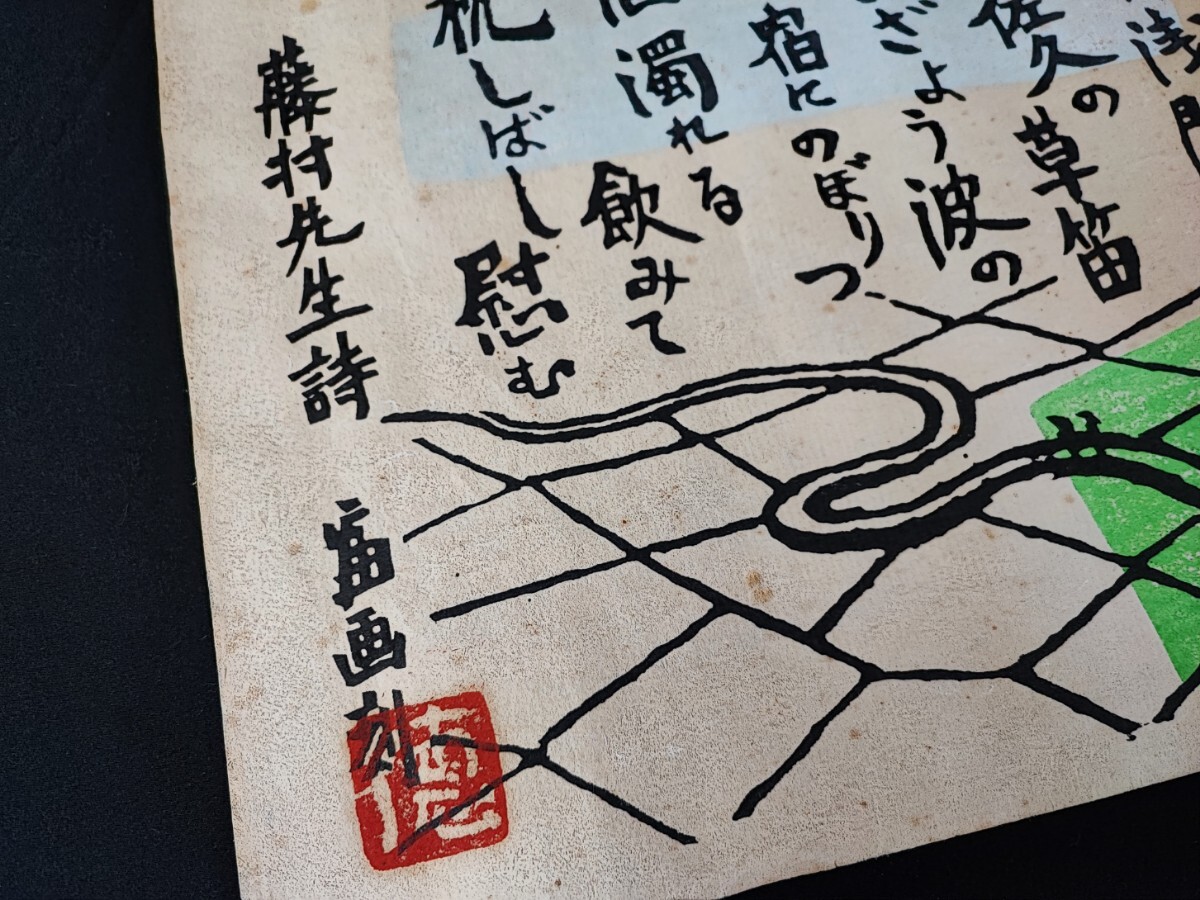 浅間
佐久の草笛
ざよう波の
宿にのぼりつ
濁れる飲みて
枕しばし慰む
藤村先生詩
富画刻